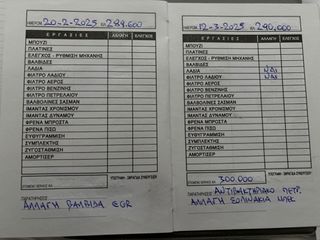 ΗΜΕΡΟΜ. 20-2-2025 ΧΛ 289.600
ΕΡΓΑΣΙΕΣ ΑΛΛΑΓΗ ΕΛΕΓΧΟΣ
ΜΠΟΥΖΙ
ΠΛΑΤΙΝΕΣ
ΕΛΕΓΧΟΣ - ΡΥΘΜΙΣΗ ΜΗΧΑΝΗΣ
ΒΑΛΒΙΔΕΣ
ΛΑΔΙΑ
ΦΙΛΤΡΟ ΛΑΔΙΟΥ
ΦΙΛΤΡΟ ΑΕΡΟΣ
ΦΙΛΤΡΟ ΒΕΝΖΙΝΗΣ
ΦΙΛΤΡΟ ΠΕΤΡΕΛΑΙΟΥ
ΒΑΛΒΟΛΙΝΕΣ ΣΑΣΜΑΝ
ΙΜΑΝΤΑΣ ΧΡΟΝΙΣΜΟΥ
ΙΜΑΝΤΑΣ ΔΥΝΑΜΟΥ
ΦΡΕΝΑ ΜΠΡΟΣΤΑ
ΦΡΕΝΑ ΠΙΣΩ
ΕΥΘΥΓΡΑΜΜΙΣΗ
ΣΥΜΠΛΕΚΤΗΣ
ΖΥΓΟΣΤΑΘΜΙΣΗ
ΑΜΟΡΤΙΣΕΡ
ΕΠΟΜΕΝΟ SERVICE ΧΛ.
ΥΠΟΓΡΑΦΗ - ΣΦΡΑΓΙΔΑ ΣΥΝΕΡΓΕΙΟΥ
ΠΑΡΑΤΗΡΗΣΕΙΣ
ΑΛΛΑΓΗ ΒΑΛΒΙΔΑ EGR
ΗΜΕΡΟΜ. 12-3-2025 ΧΛ 290,000
ΕΡΓΑΣΙΕΣ ΑΛΛΑΓΗ ΕΛΕΓΧΟΣ
ΜΠΟΥΖΙ
ΠΛΑΤΙΝΕΣ
ΕΛΕΓΧΟΣ - ΡΥΘΜΙΣΗ ΜΗΧΑΝΗΣ
ΒΑΛΒΙΔΕΣ
ΛΑΔΙΑ ΝΑΙ
ΦΙΛΤΡΟ ΛΑΔΙΟΥ ΝΑΙ
ΦΙΛΤΡΟ ΑΕΡΟΣ
ΦΙΛΤΡΟ ΒΕΝΖΙΝΗΣ
ΦΙΛΤΡΟ ΠΕΤΡΕΛΑΙΟΥ
ΒΑΛΒΟΛΙΝΕΣ ΣΑΣΜΑΝ
ΙΜΑΝΤΑΣ ΧΡΟΝΙΣΜΟΥ
ΙΜΑΝΤΑΣ ΔΥΝΑΜΟΥ
ΦΡΕΝΑ ΜΠΡΟΣΤΑ
ΦΡΕΝΑ ΠΙΣΩ
ΕΥΘΥΓΡΑΜΜΙΣΗ
ΣΥΜΠΛΕΚΤΗΣ
ΖΥΓΟΣΤΑΘΜΙΣΗ
ΑΜΟΡΤΙΣΕΡ
ΕΠΟΜΕΝΟ SERVICE ΧΛ. 300.000
ΥΠΟΓΡΑΦΗ - ΣΦΡΑΓΙΔΑ ΣΥΝΕΡΓΕΙΟΥ
ΠΑΡΑΤΗΡΗΣΕΙΣ ΑΝΤΙΒΑΚΤΗΡΙΑΚΟ ΠΕΤΡ.
ΑΛΛΑΓΗ ΣΩΛΗΝΑΚΙΑ